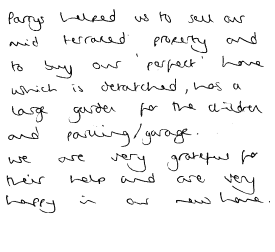 Parrys helped us to sell our
mid terraced property and
to buy our 'perfect' home
which is detatched, has a
large garden for the children
and parking/garage.
we are very grateful for
their help and are very
happy in our new home.